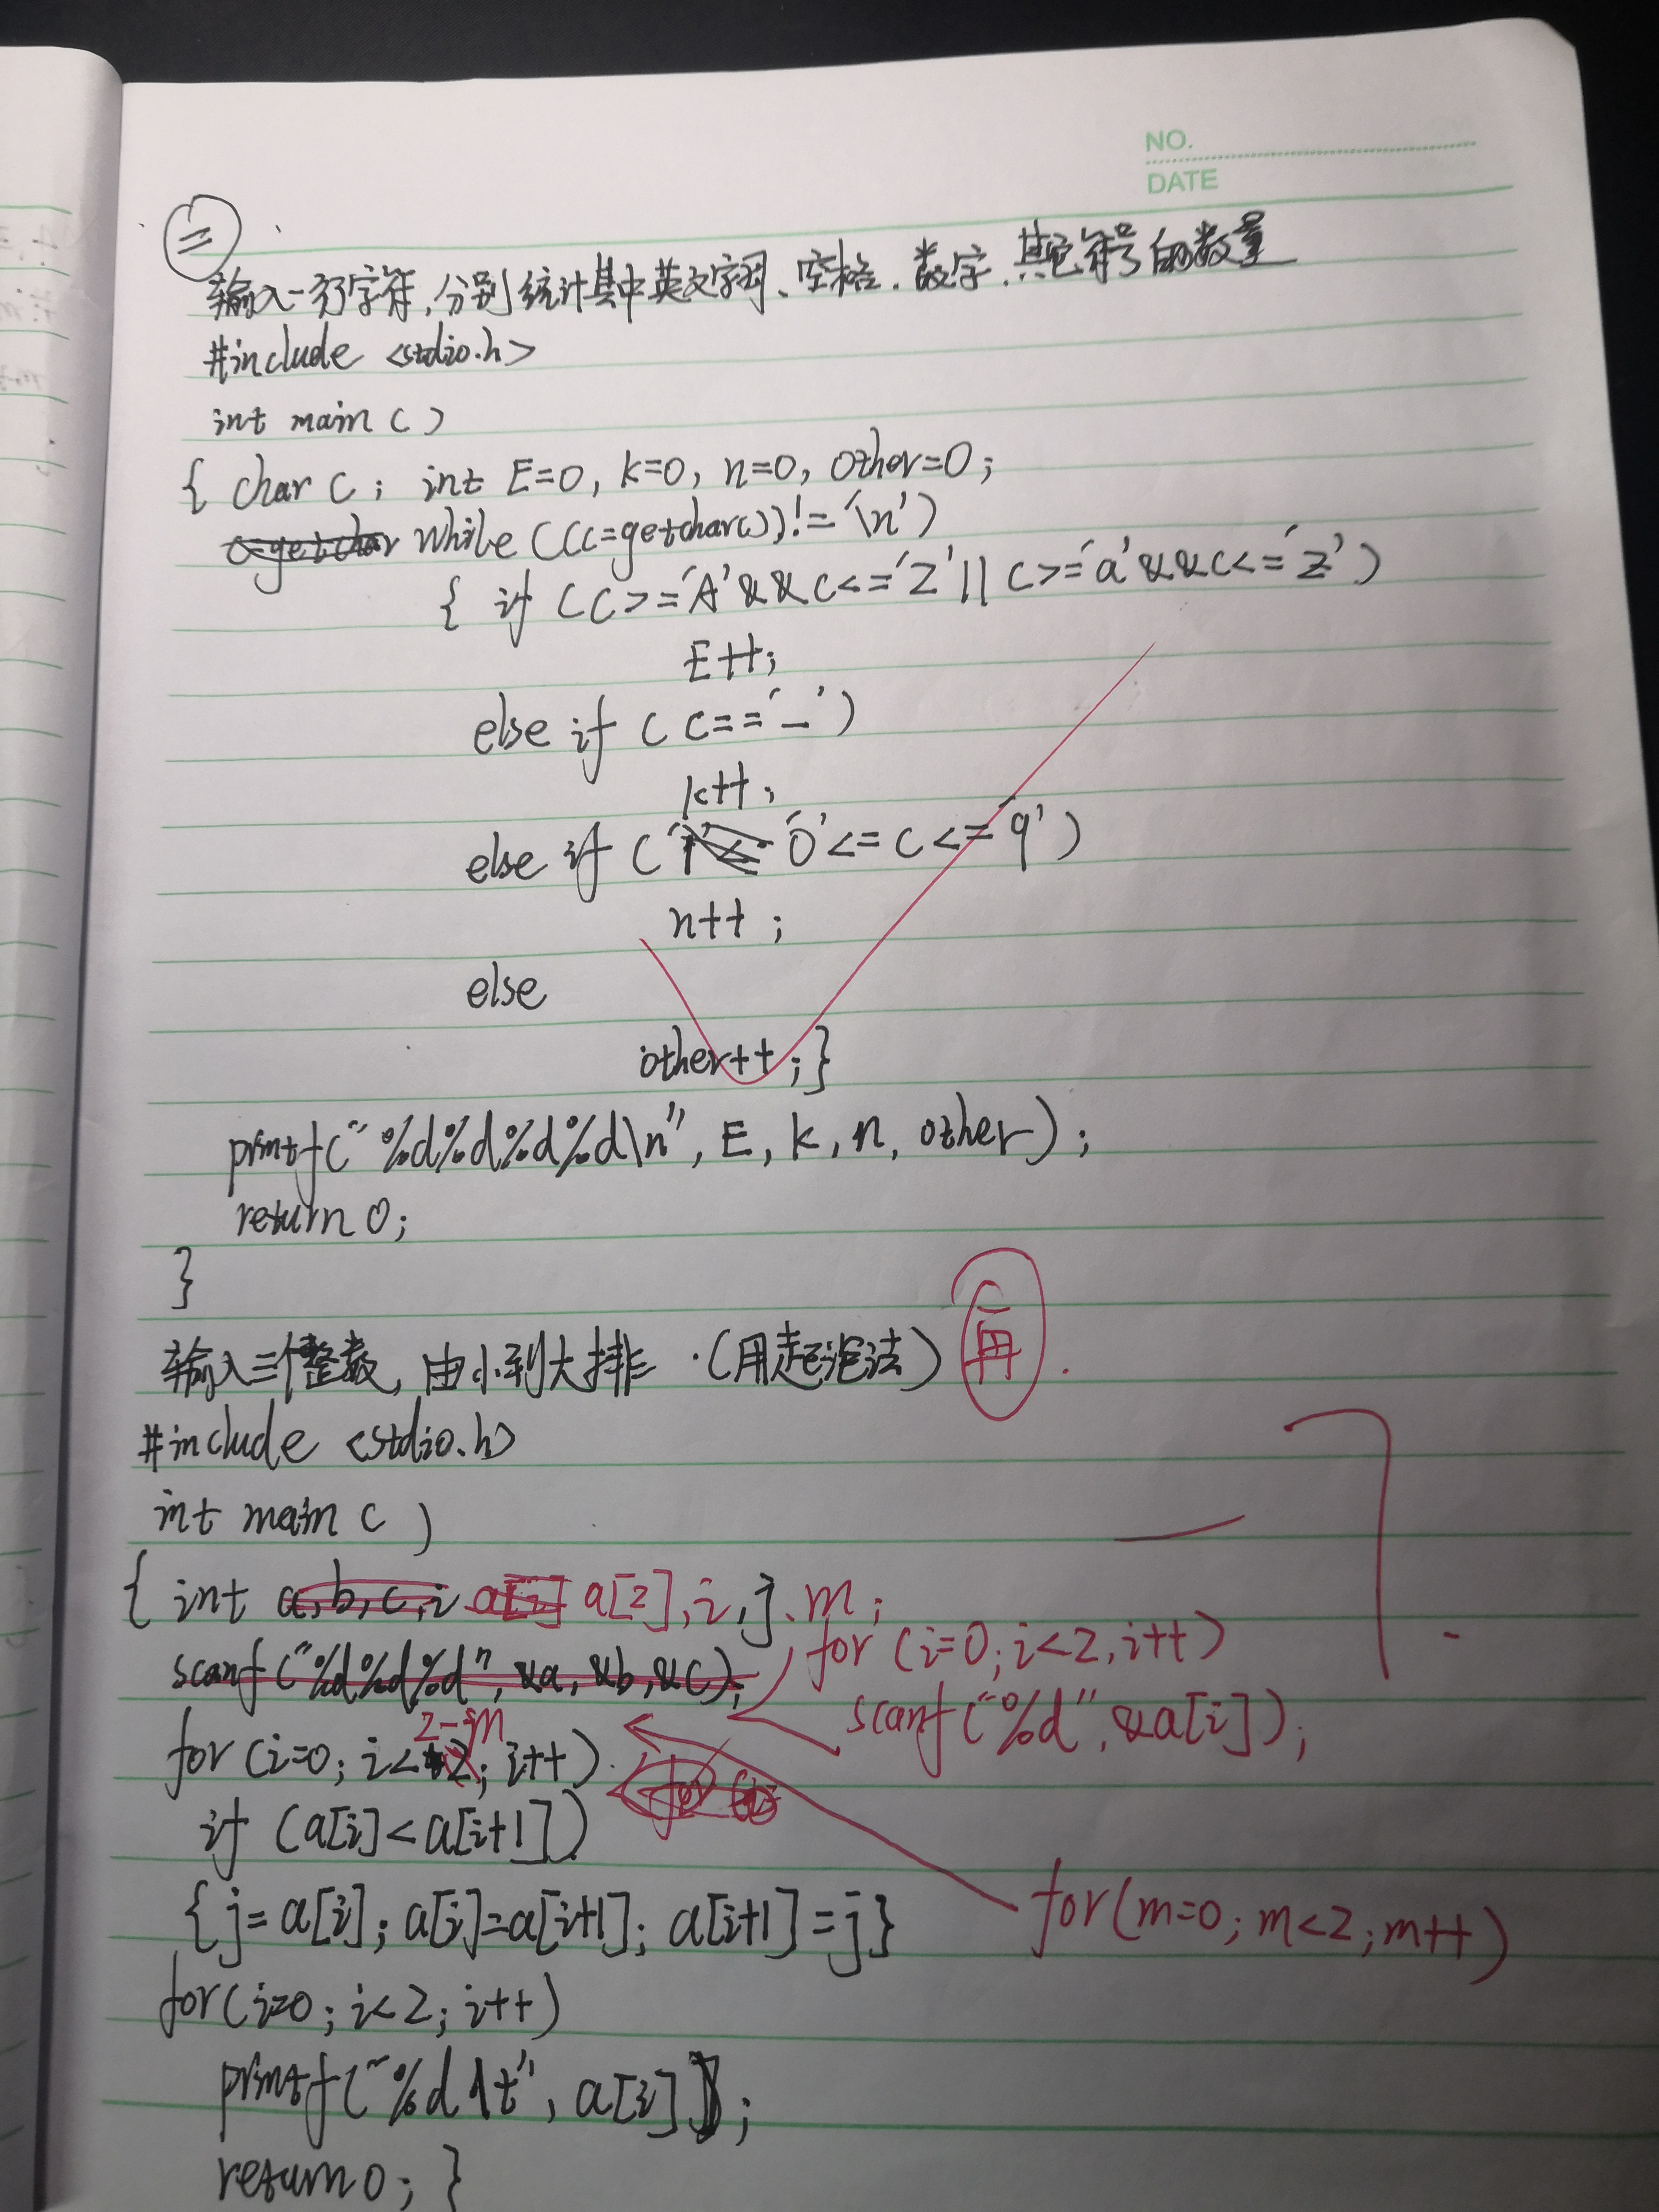 NO.
DATE
二
输入一行字符,分别统计其中英文字母、空格、数字、其它符号的数量
#include <stdio.h>
int main ( )
{ char c; int E=0, k=0, n=0, other=0;
c=getchar while ((c=getchar())!='\n')
{ if (c>='A'&&c<='Z'||c>='a'&&c<='z')
E++;
else if ( c=='_')
k++;
else if ( '0'<=c<='9')
n++;
else
other++;}
printf("%d%d%d%d\n", E, k, n, other);
return 0;
}
输入三个整数,由小到大排.(用起泡法) 再.
#include <stdio.h>
int main ( )
{ int a,b,c,i a[i] a[2],i,j,m;
for (i=0;i<2,i++)
scanf("%d%d%d", &a, &b, &c);
scanf("%d",&a[i]);
2-m
for (i=0; i<2; i++)
if (a[i]<a[i+1])
{j=a[i]; a[i]=a[i+1]; a[i+1]=j}
for(m=0;m<2;m++)
for(i=0; i<2; i++)
printf("%d\t", a[i]);
return 0; }